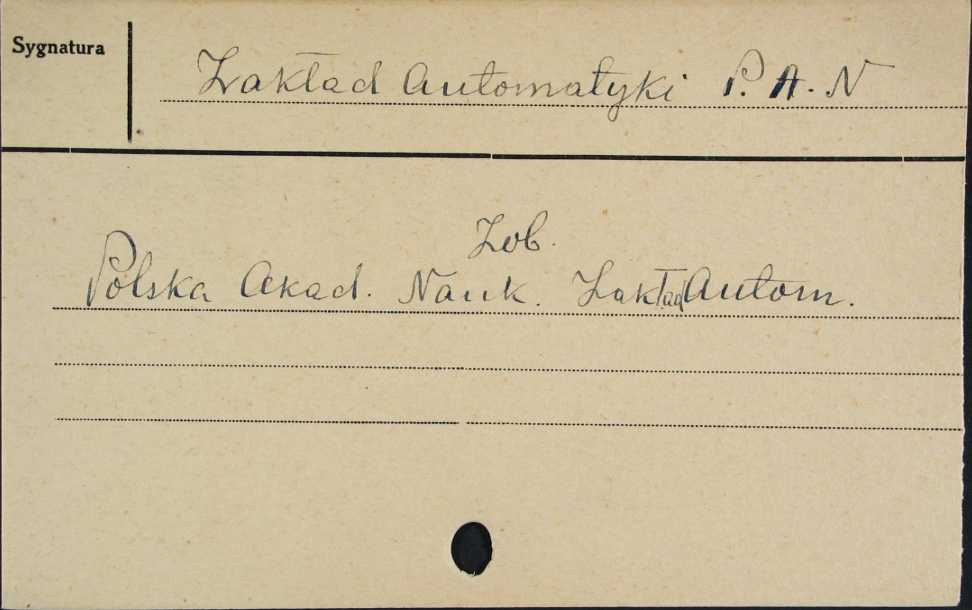 Sygnatura
Zakład Automatyki P.A.N
Zob.
Polska Akad. Nauk. Zakład Autom.